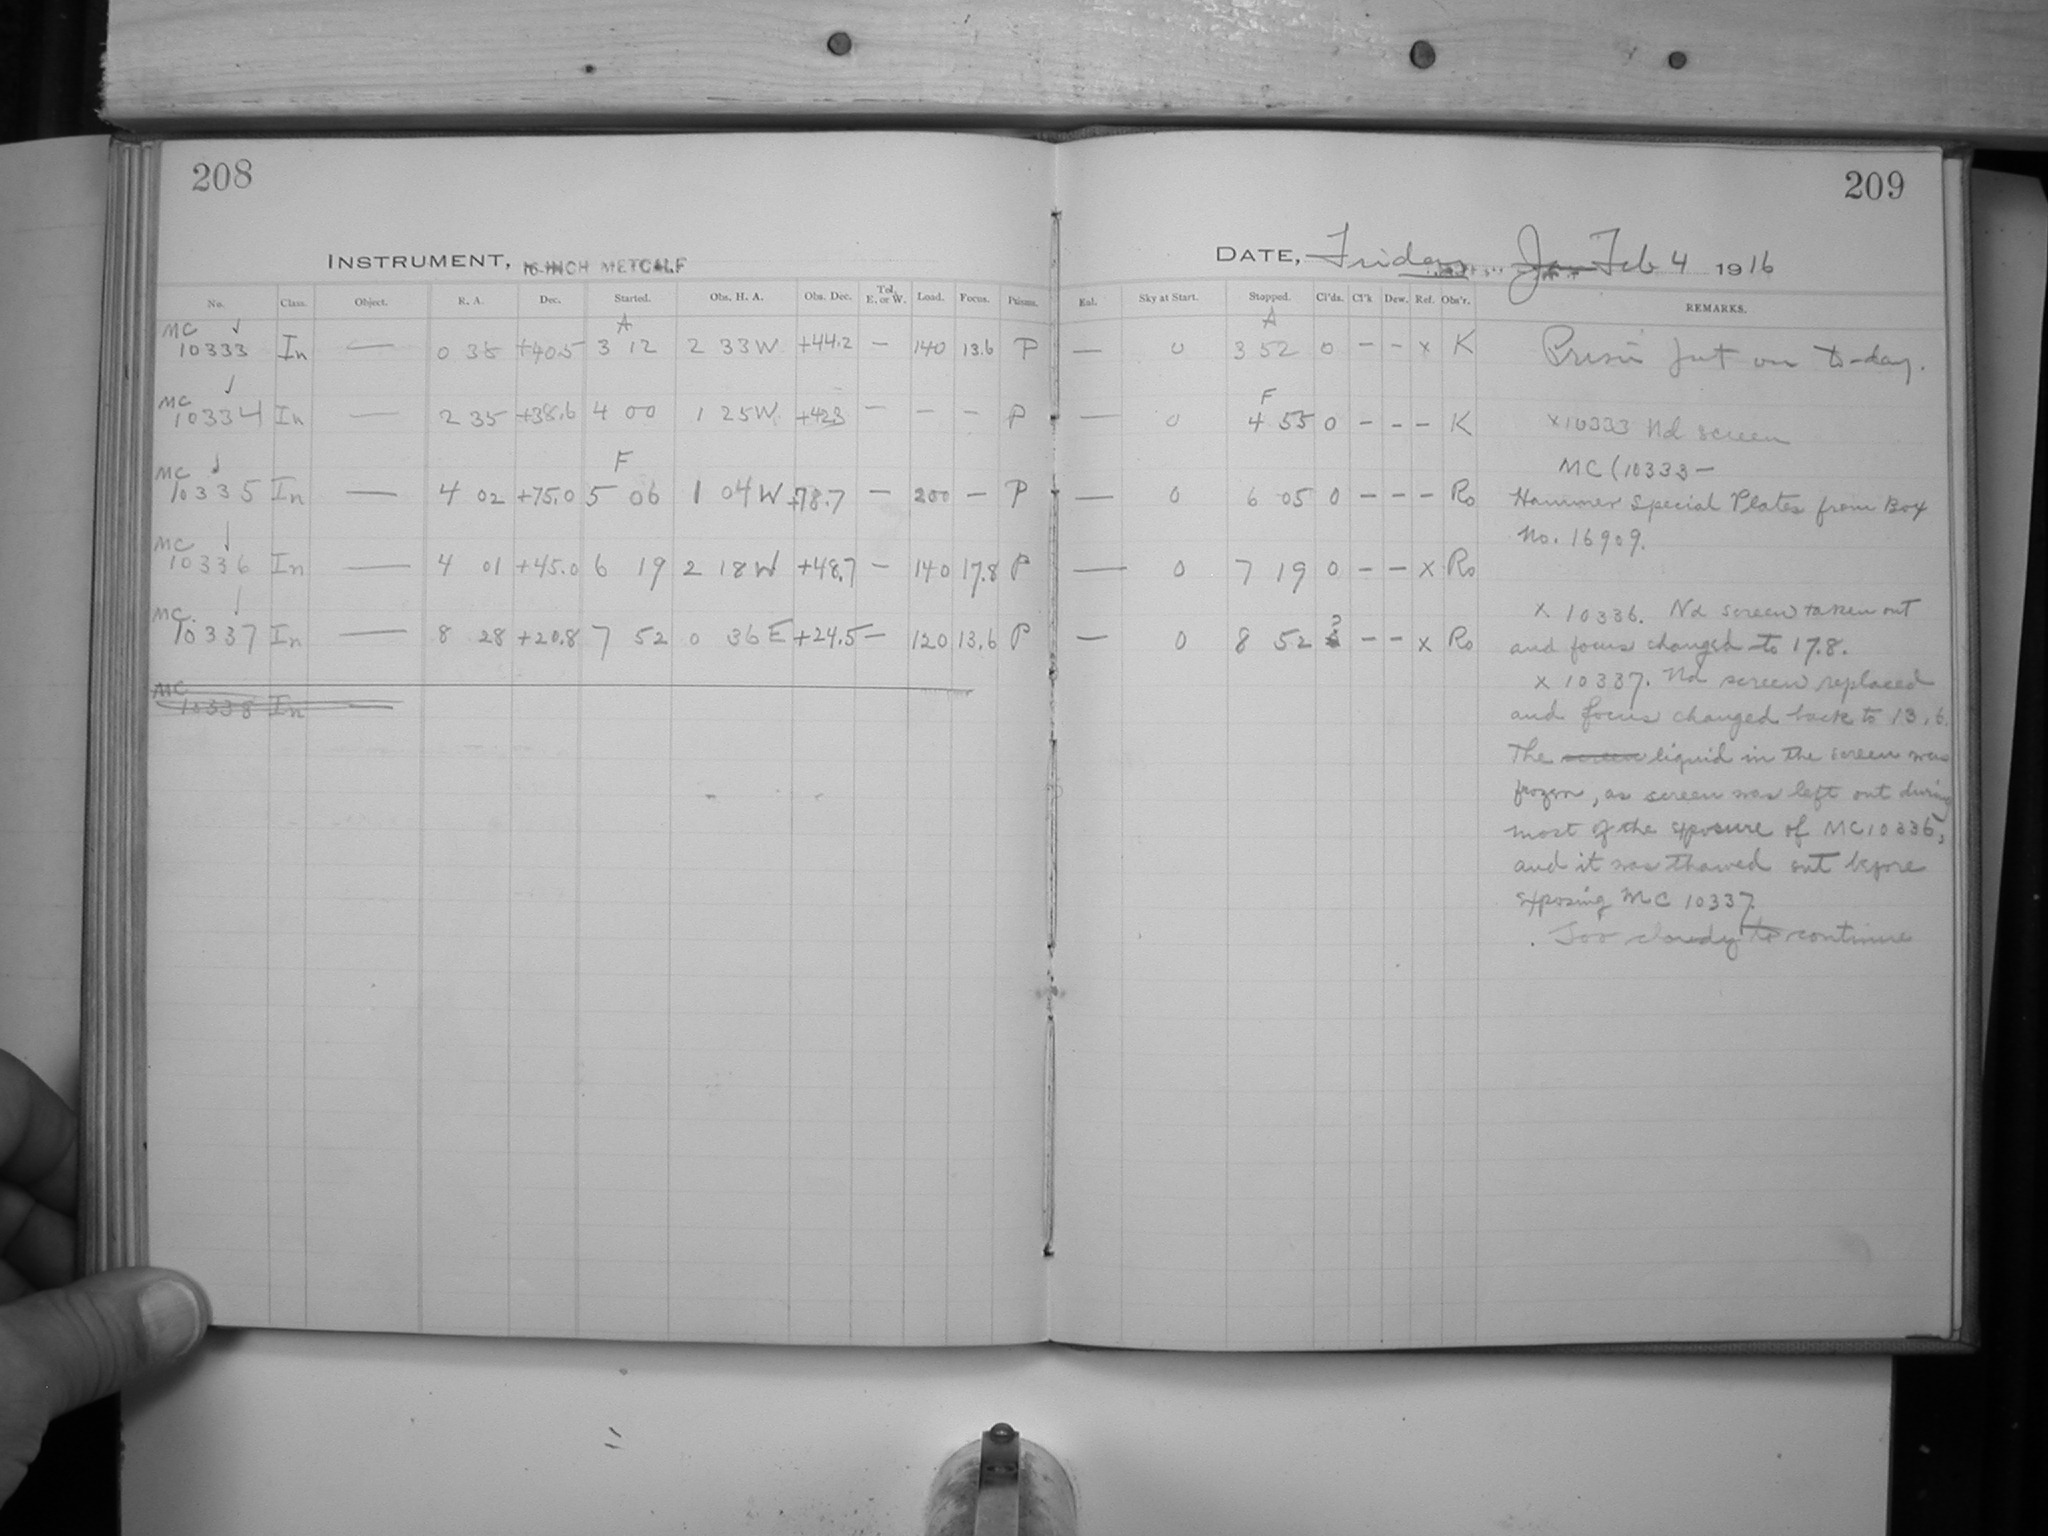 208
INSTRUMENT, 16-INCH METCALF
No. Class. Object. R. A. Dec. Started. Obs. H. A. Obs. Dec. Tel. E. or W. Load. Focus. Prisms.
A
MC 10333 In — 0 38 +40.5 3 12 2 33W +44.2 — 140 13.6 P
MC 10334 In — 2 35 +38.6 4 00 1 25W +42.3 — — — P
F
MC 10335 In — 4 02 +75.0 5 06 1 04W +78.7 — 200 — P
MC 10336 In — 4 01 +45.0 6 19 2 18W +48.7 — 140 17.8 P
MC 10337 In — 8 28 +20.8 7 52 0 36E +24.5 — 120 13.6 P
MC 10338 In
209
DATE, Friday Jan Feb 4 1916
Exl. Sky at Start. Stopped. Cl'ds. Cl'k Dew. Ref. Obs'r. REMARKS.
A
— 0 3 52 0 – – x K
F
— 0 4 55 0 – – – K
— 0 6 05 0 – – – Ro
— 0 7 19 0 – – x Ro
— 0 8 52 3 – – x Ro
Prism put on to-day.
x10333 Nd screen
MC (10333 —
Hammer Special Plates from Box
No. 16909.
x 10336. Nd screen taken out
and focus changed to 17.8.
x 10337. Nd screen replaced
and focus changed back to 13.6
The screen liquid in the screen was
frozen, as screen was left out during
most of the exposure of MC10336,
and it was thawed out before
exposing MC 10337.
Too cloudy to continue